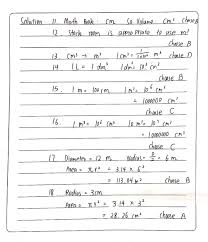 Solution 11. Math Book cm So Volume cm³ choose B
12. Store room is appropriate to use m³
choose B
13. cm³ → m³ 1 cm³ = m³ choose D
14. 1 L = 1 dm³ 1 dm³ = 10³ cm³
choose B
15. 1 m = 100 cm 1 m³ = 10⁶ cm³
= 1000000 cm³
choose C
16. 1 m³ = 10⁶ cm³ 10 m³ = 10⁷ cm³
= 10000000 cm³
choose C
17 Diameter = 12 m Radius = = 6 m
Area = πr² = 3.14 × 6²
= 113.04 m² choose B
18 Radius = 3cm
Area = πr² = 3.14 × 3²
= 28.26 cm² choose A